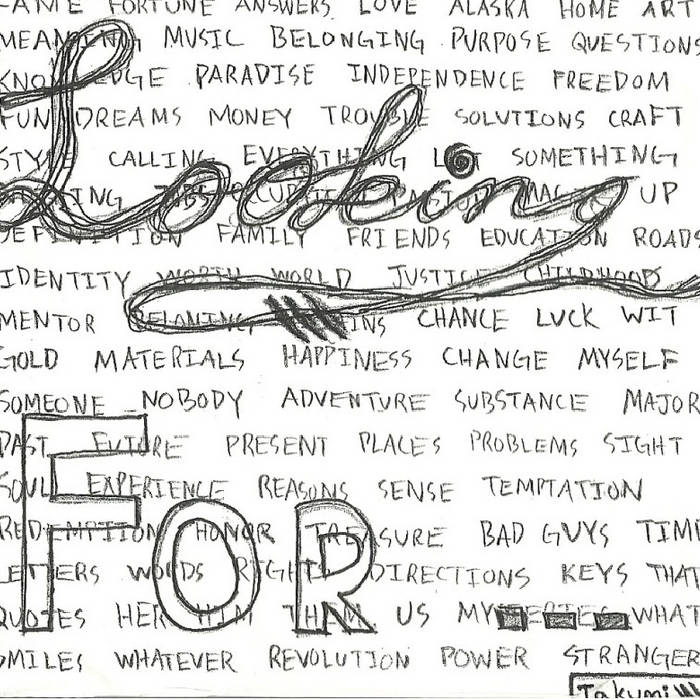 FAME FORTUNE ANSWERS LOVE ALASKA HOME ART
MEANING MUSIC BELONGING PURPOSE QUESTIONS
KNOWLEDGE PARADISE INDEPENDENCE FREEDOM
FUN DREAMS MONEY TROUBLE SOLUTIONS CRAFT
STYLE CALLING EVERYTHING LOST SOMETHING
Looking
UP
DEFINITION FAMILY FRIENDS EDUCATION ROADS
IDENTITY WORTH WORLD JUSTICE CHILDHOODS
MENTOR CHANCE LUCK WIT
GOLD MATERIALS HAPPINESS CHANGE MYSELF
SOMEONE NOBODY ADVENTURE SUBSTANCE MAJOR
PAST FUTURE PRESENT PLACES PROBLEMS SIGHT
SOUL EXPERIENCE REASONS SENSE TEMPTATION
FOR...
REDEMPTION HONOR TREASURE BAD GUYS TIME
LETTERS WORDS RIGHTS DIRECTIONS KEYS THAT
QUOTES HER HIM THEM US MYSTERIES WHAT
SMILES WHATEVER REVOLUTION POWER STRANGER
Takumi W